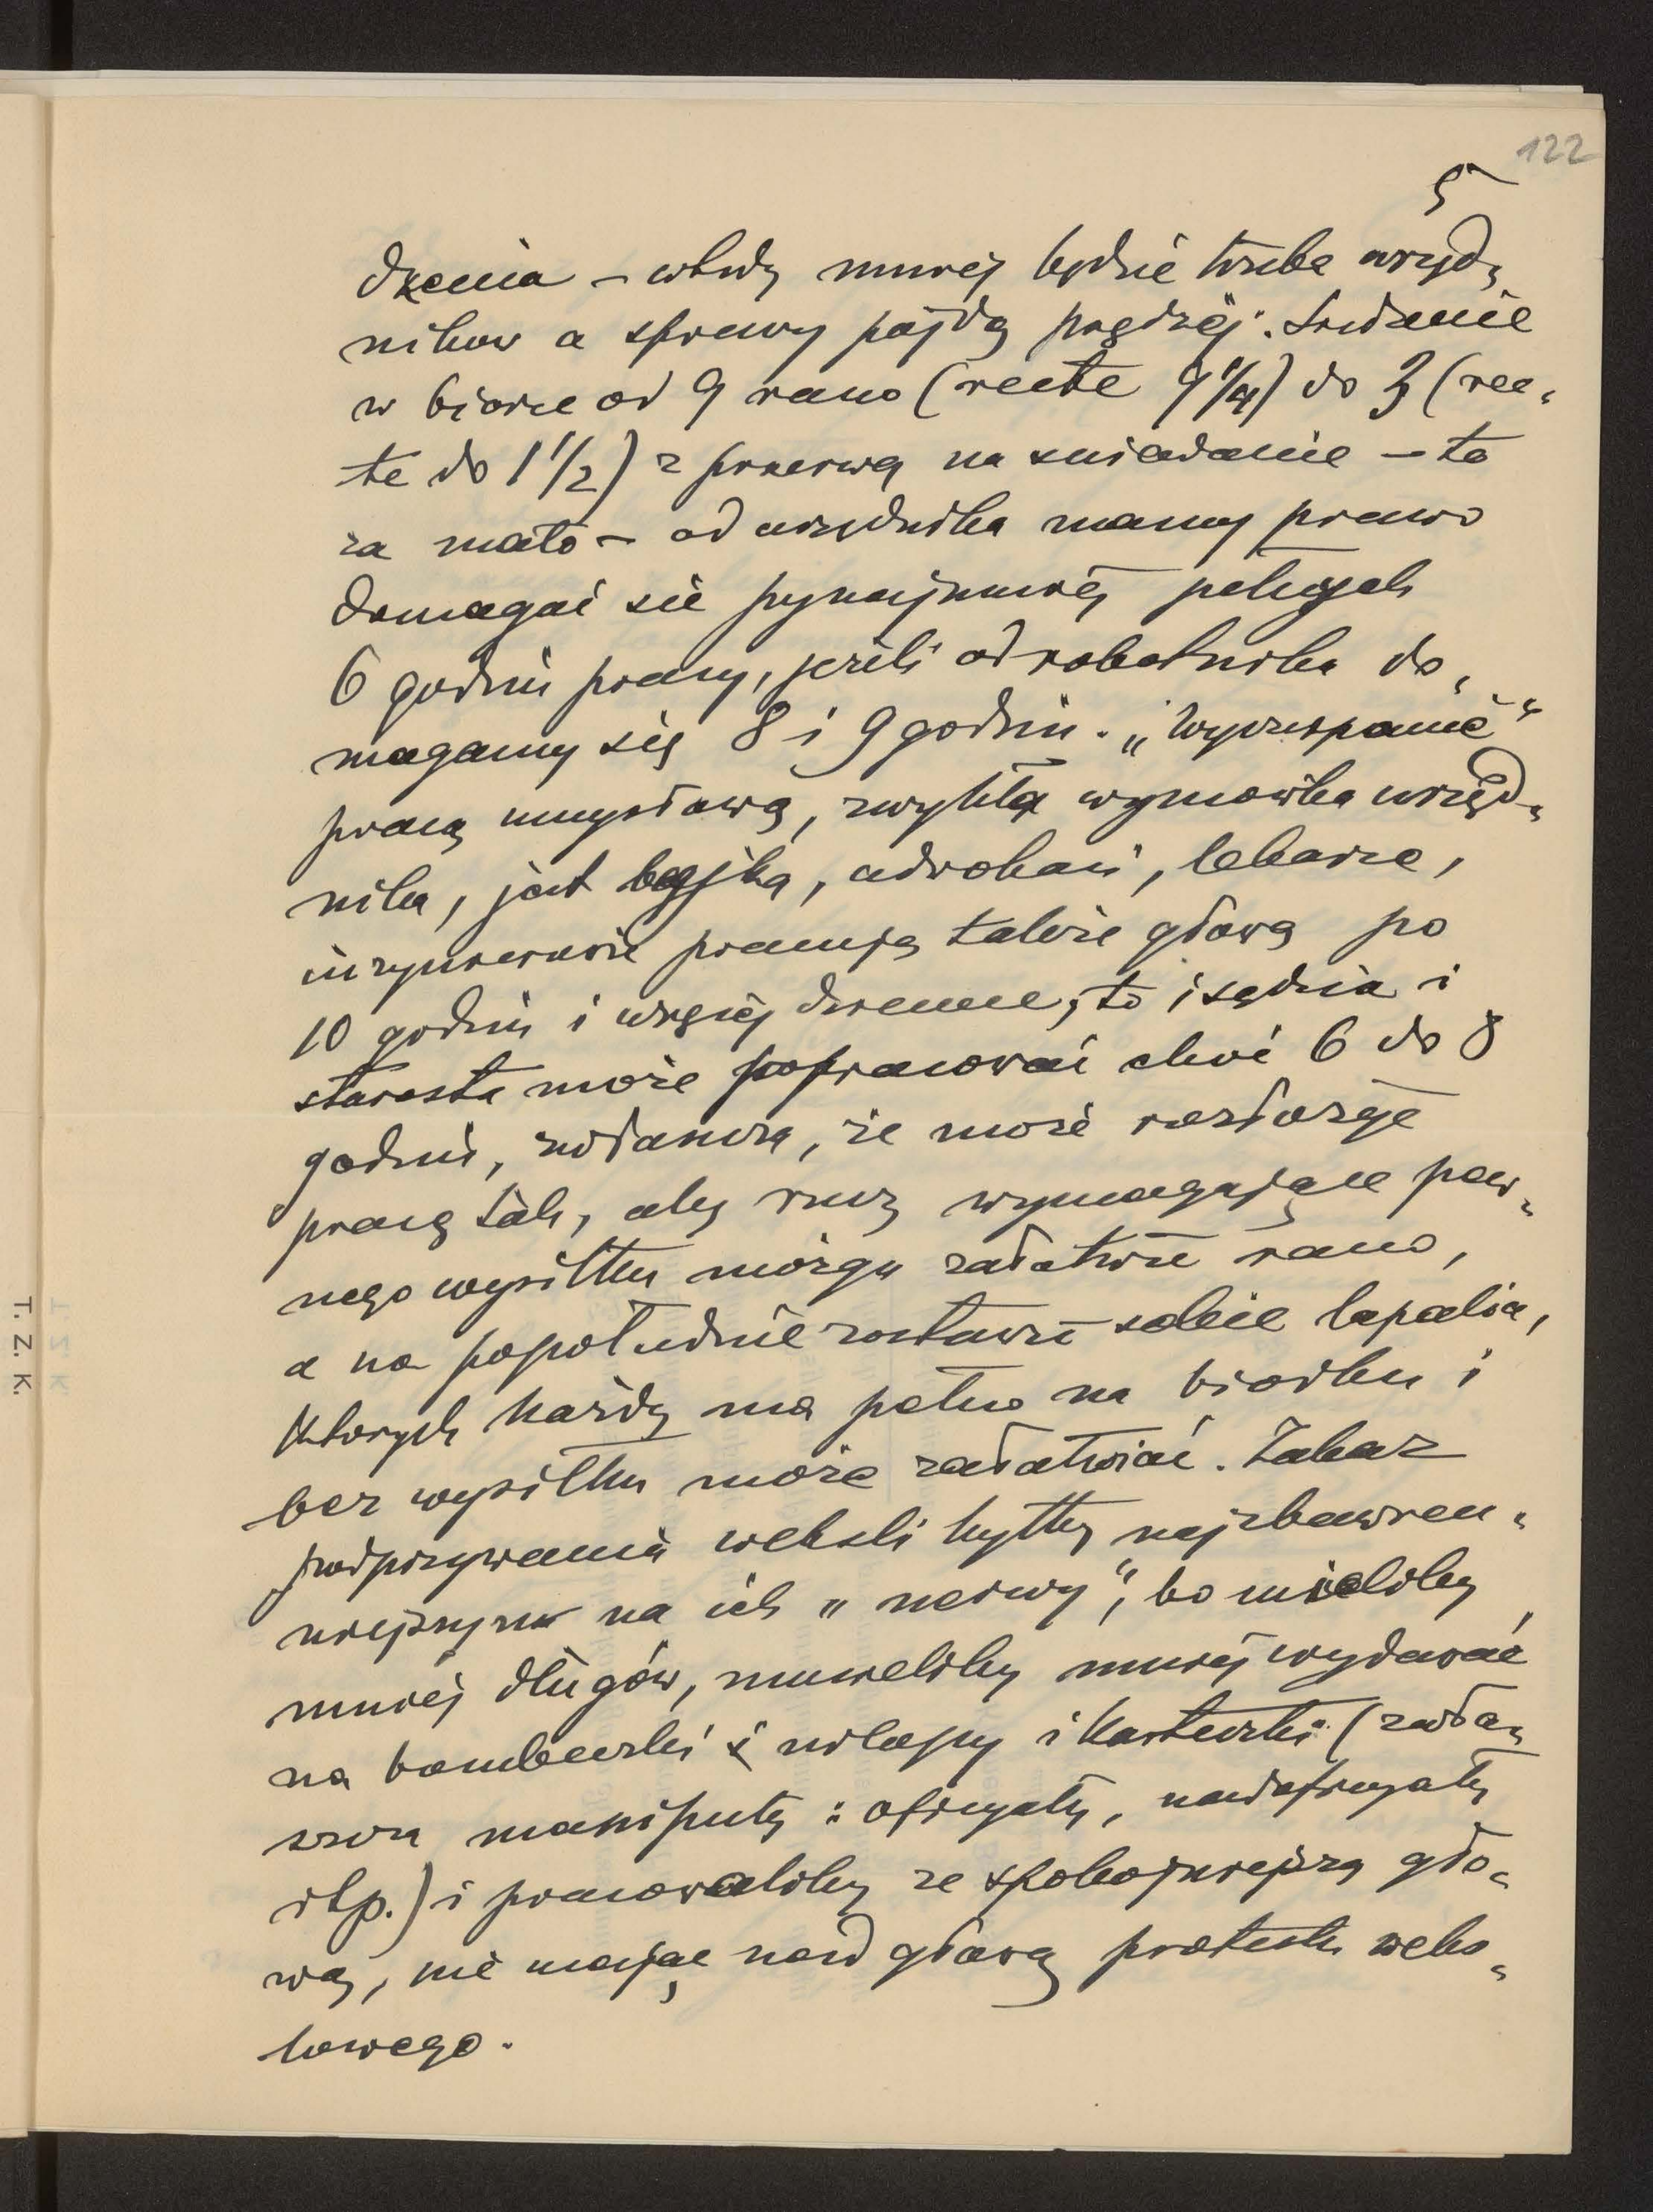 122
5
dzenia – wtedy mniej będzie trzeba urzęd„
ników a sprawy pójdą prędzej. Siedzenie
w biorze od 9 rano (recte 9 1/4) do 3 (rec„
te do 1 1/2) z przerwą na śniadanie – to
za mało – od urzędnika mamy prawo
domagać się przynajmniej pełnych
6 godzin pracy, jeżeli od robotnika do„
magamy się 8 i 9 godzin. „Wyczerpanie“
pracą umysłową, zwykła wymówka urzęd„
nika, jest bajką, adwokaci, lekarze,
inzynierowie pracują także głową po
10 godzin i więcej dziennie, to i sędzia i
starosta może popracować choć 6 do 8
godzin, zwłaszcza, że może rozłożyć
pracę tak, aby rzeczy wymagające pew„
nego wysiłku mózgu załatwić rano,
a na popołudnie zostawić sobie lapalia,
których każdy ma pełno na biórku i
bez wysiłku może załatwiać. Zakaz
podpisywania weksli byłby najzbawien„
niejszym na ich „nerwy“, bo mieliby
mniej długów, musieliby mniej wydawać
na bombeczki i ochlapy i karteczki (zwła„
szcza manipuły: oficyały, nadoficyały
itp.) i pracowaliby ze spokojniejszą gło„
wą, nie mając nad głową protestu weks„
lowego.
T. Z. K.